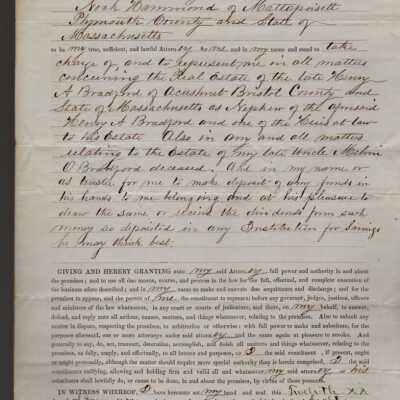 Noah Hammond of Mattapoisett
Plymouth County and State of
Massachusetts
to be my true, sufficient, and lawful Attorney to me, and in my name and stead to take
charge of, and to represent me in all matters
concerning the Real Estate of the late Henry
A Bradford of Acushnet Bristol County and
State of Massachusetts as Nephew of the aforesaid
Henry A Bradford and one of the Heirs at law
to his Estate Also in any and all matters
relating to the Estate of my late Uncle Melvin
O Bradford deceased. And in my name or
as trustee for me to make deposit of any funds in
his hands to me belonging and at his pleasure
to draw the same or receive the dividends from such
money so deposited in any Institution for Savings
he may think best.
GIVING AND HEREBY GRANTING unto my said Attorney, full power and authority in and about
the premises; and to use all due means, course, and process in the law for the full, effectual, and complete execution of
the business afore described; and in my name to make and execute due acquittance and discharge; and for the
premises to appear, and the person of me the constituent to represent before any governor, judges, justices, officers
and ministers of the law whatsoever, in any court or courts of judicature, and there, in my behalf, to answer,
defend, and reply unto all actions, causes, matters, and things whatsoever, relating to the premises. Also to submit any
matter in dispute, respecting the premises, to arbitration or otherwise; with full power to make and substitute, for the
purposes aforesaid, one or more attorneys under said attorney and the same again at pleasure to revoke. And
generally to say, do, act, transact, determine, accomplish, and finish all matters and things whatsoever, relating to the
premises, as fully, amply, and effectually, to all intents and purposes, as I the said constituent, if present, ought
or might personally, although the matter should require more special authority than is herein comprised, I the said
constituent ratifying, allowing and holding firm and valid all and whatsoever my said attorney or his
substitutes shall lawfully do, or cause to be done, in and about the premises, by virtue of these presents.
IN WITNESS WHEREOF, I have hereunto set my hand and seal this Twelfth